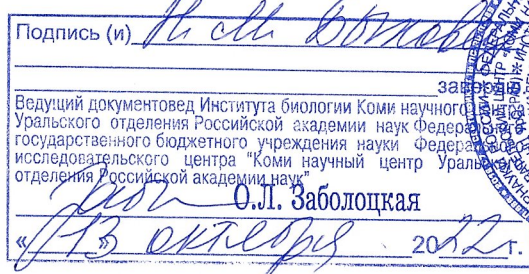 Подпись (и)
заверяю
Ведущий документовед Института биологии Коми научного
Уральского отделения Российской академии наук Федера
государственного бюджетного учреждения науки Федера
исследовательского центра "Коми научный центр Ураль
отделения Российской академии наук"
О.Л. Заболоцкая
«13» октября 2022 г.